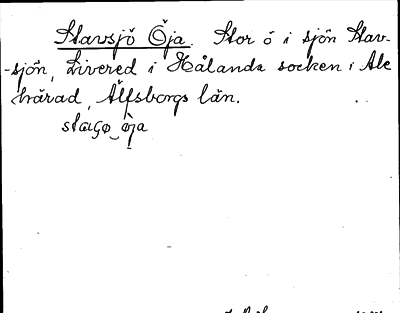 Stavsjö Öja. Stor ö i sjön Stav-
-sjön, Livered i Hålanda socken i Ale
härad, Älfsborgs län.
öja